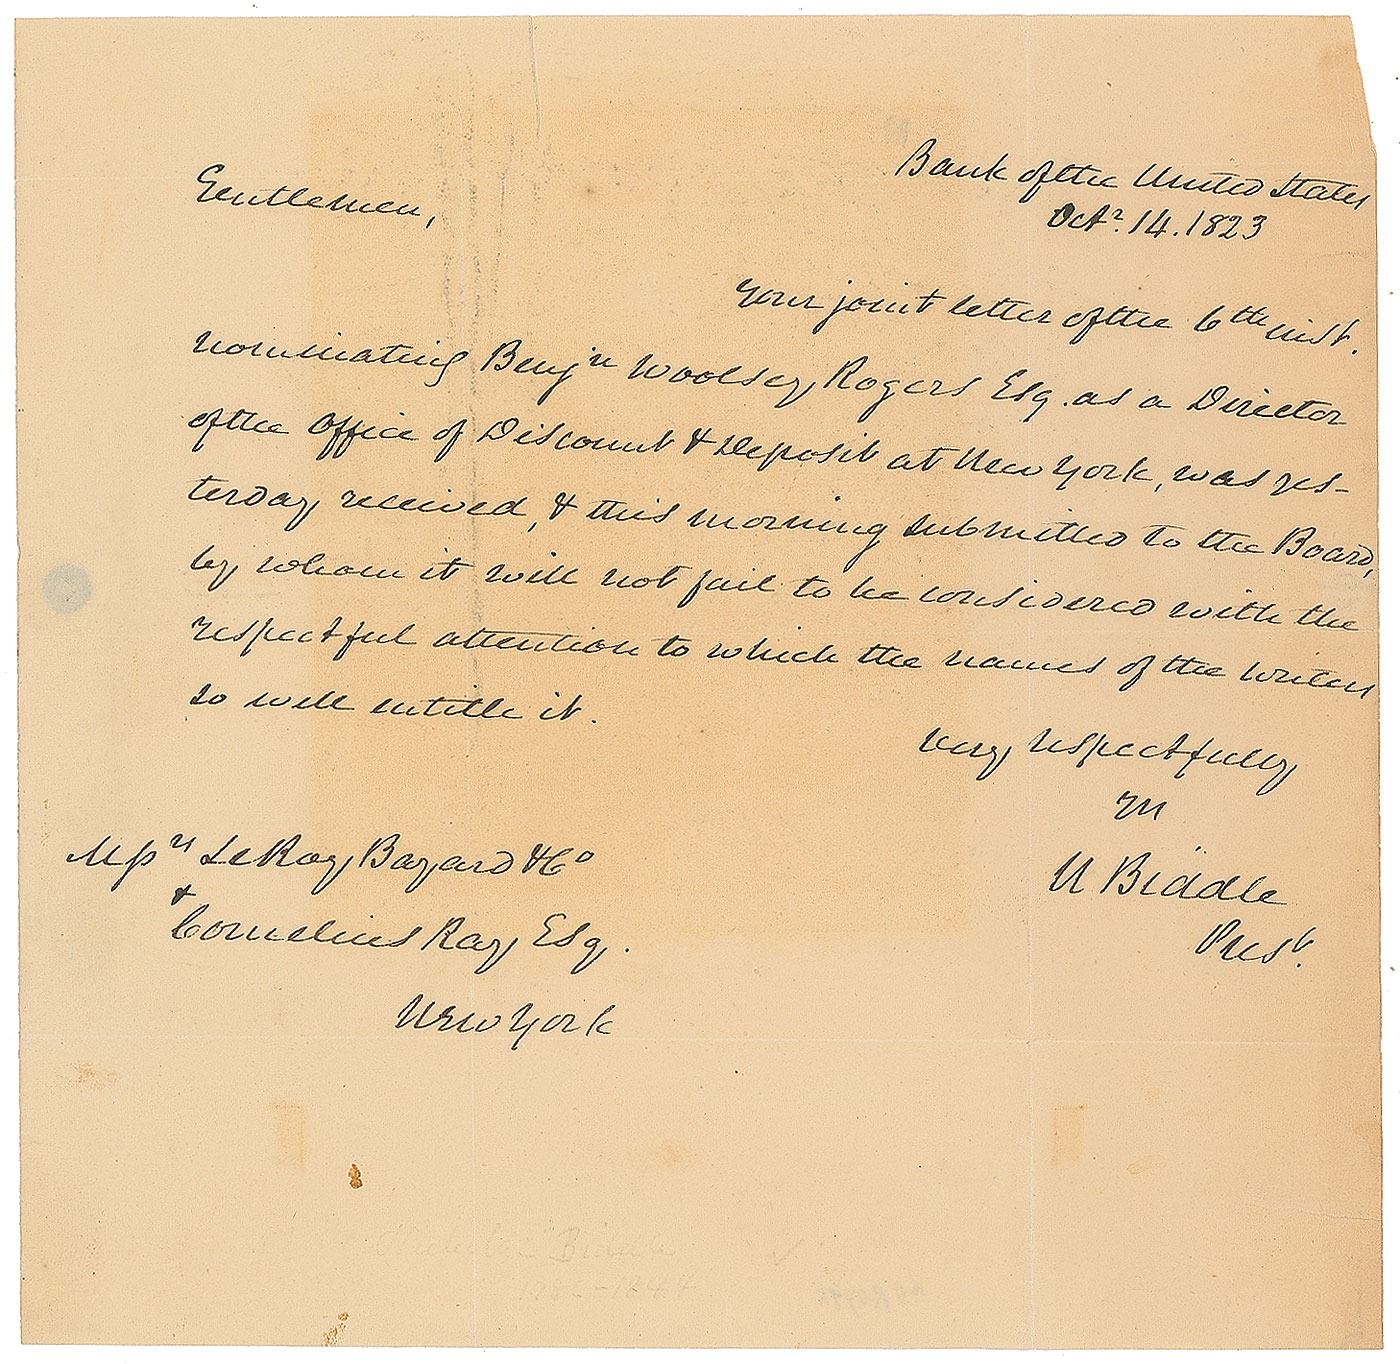 Bank of the United States
Octr. 14. 1823
Gentlemen,
Your joint letter of the 6th inst.
nominating Benjn Woolsey Rogers Esq. as a Director
of the Office of Discount & Deposit at New York, was yes-
terday received, & this morning submitted to the Board,
by whom it will not fail to be considered with the
respectful attention to which the names of the writers
so well entitle it.
Very respectfully
Yrs
N Biddle
Prest.
Messrs LeRoy, Bayard & Co
&
Cornelius Ray Esq.
New York
Nicholas Biddle
1786-1844